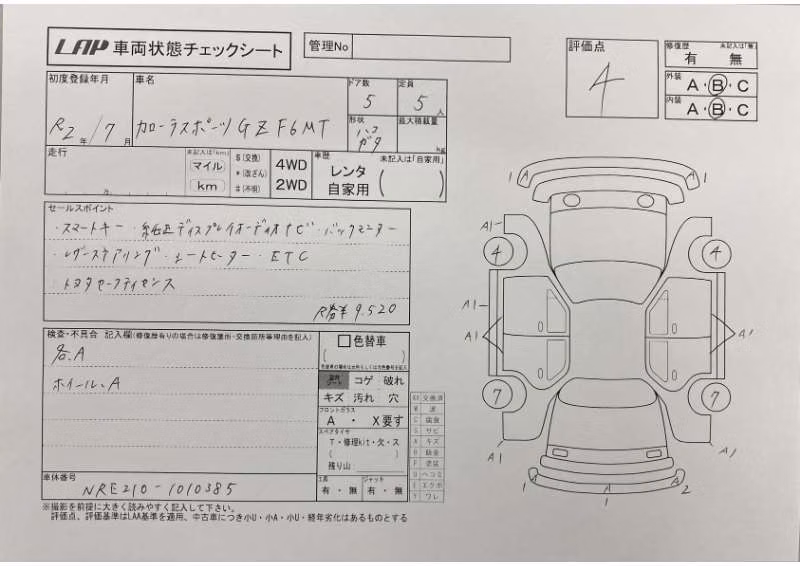 LAP 車両状態チェックシート
管理No
評価点
4
修復歴 未記入は「無」
有 無
外装
A・B・C
内装
A・B・C
初度登録年月
R2年/7月
車名
カローラスポーツ G Z F6MT
ドア数
5
定員
5人
形状
最大積載量
kg
走行
未記入は(km)
マイル
km
$(交換)
*(改ざん)
#(不明)
4WD
2WD
車歴 未記入は「自家用」
レンタ
自家用
セールスポイント
・スマートキー ・純正ディスプレイオーディオナビ・バックモニター
・レザーステアリング・シートヒーター・ETC
・トヨタセーフティセンス
R券¥9.520
検査・不具合 記入欄(修復歴有りの場合は修復箇所・交換箇所等理由を記入)
各.A
ホイール.A
色替車
コゲ 破れ
キズ 汚れ 穴
フロントガラス
A ・ X要す
スペアタイヤ
T・修理kit・欠・ス
残り山:
工具
有・無
ジャッキ
有・無
車体番号
NRE210-1010385
XX 交換済
W 波
C 腐食
S サビ
A キズ
B 鈑金
P 塗装
U ヘコミ
E エクボ
Y ワレ
1 A A 1
A1
4
4
A1
A1
A1
7
7
A1
A1
1 A A A 2
1
※撮影を前提に大きく読みやすく記入して下さい。
評価点、評価基準はLAA基準を適用、中古車につき小U・小A・小U・経年劣化はあるものとする